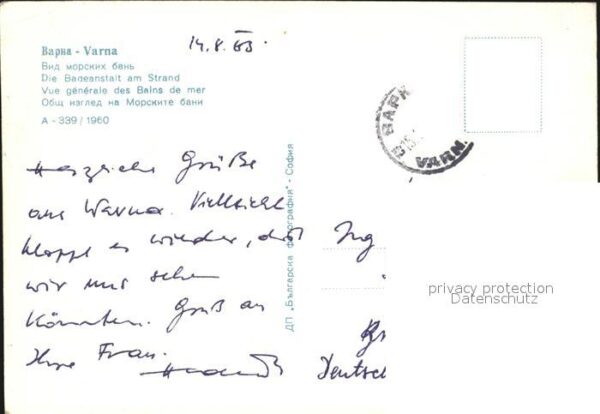 14.8.63.
Варна - Varna
Вид морских бань
Die Badeanstalt am Strand
Vue générale des Bains de mer
Общ изглед на Морските бани
А - 339 / 1960
ВАРН
VARN
Herzliche Grüße
aus Warna. Vielleicht
klappt es wieder, daß
wir uns sehen
könnten. Gruß an
Ihre Frau.
ДП „Българска фотография" - София
Ing
Deutsch
privacy protection
Datenschutz